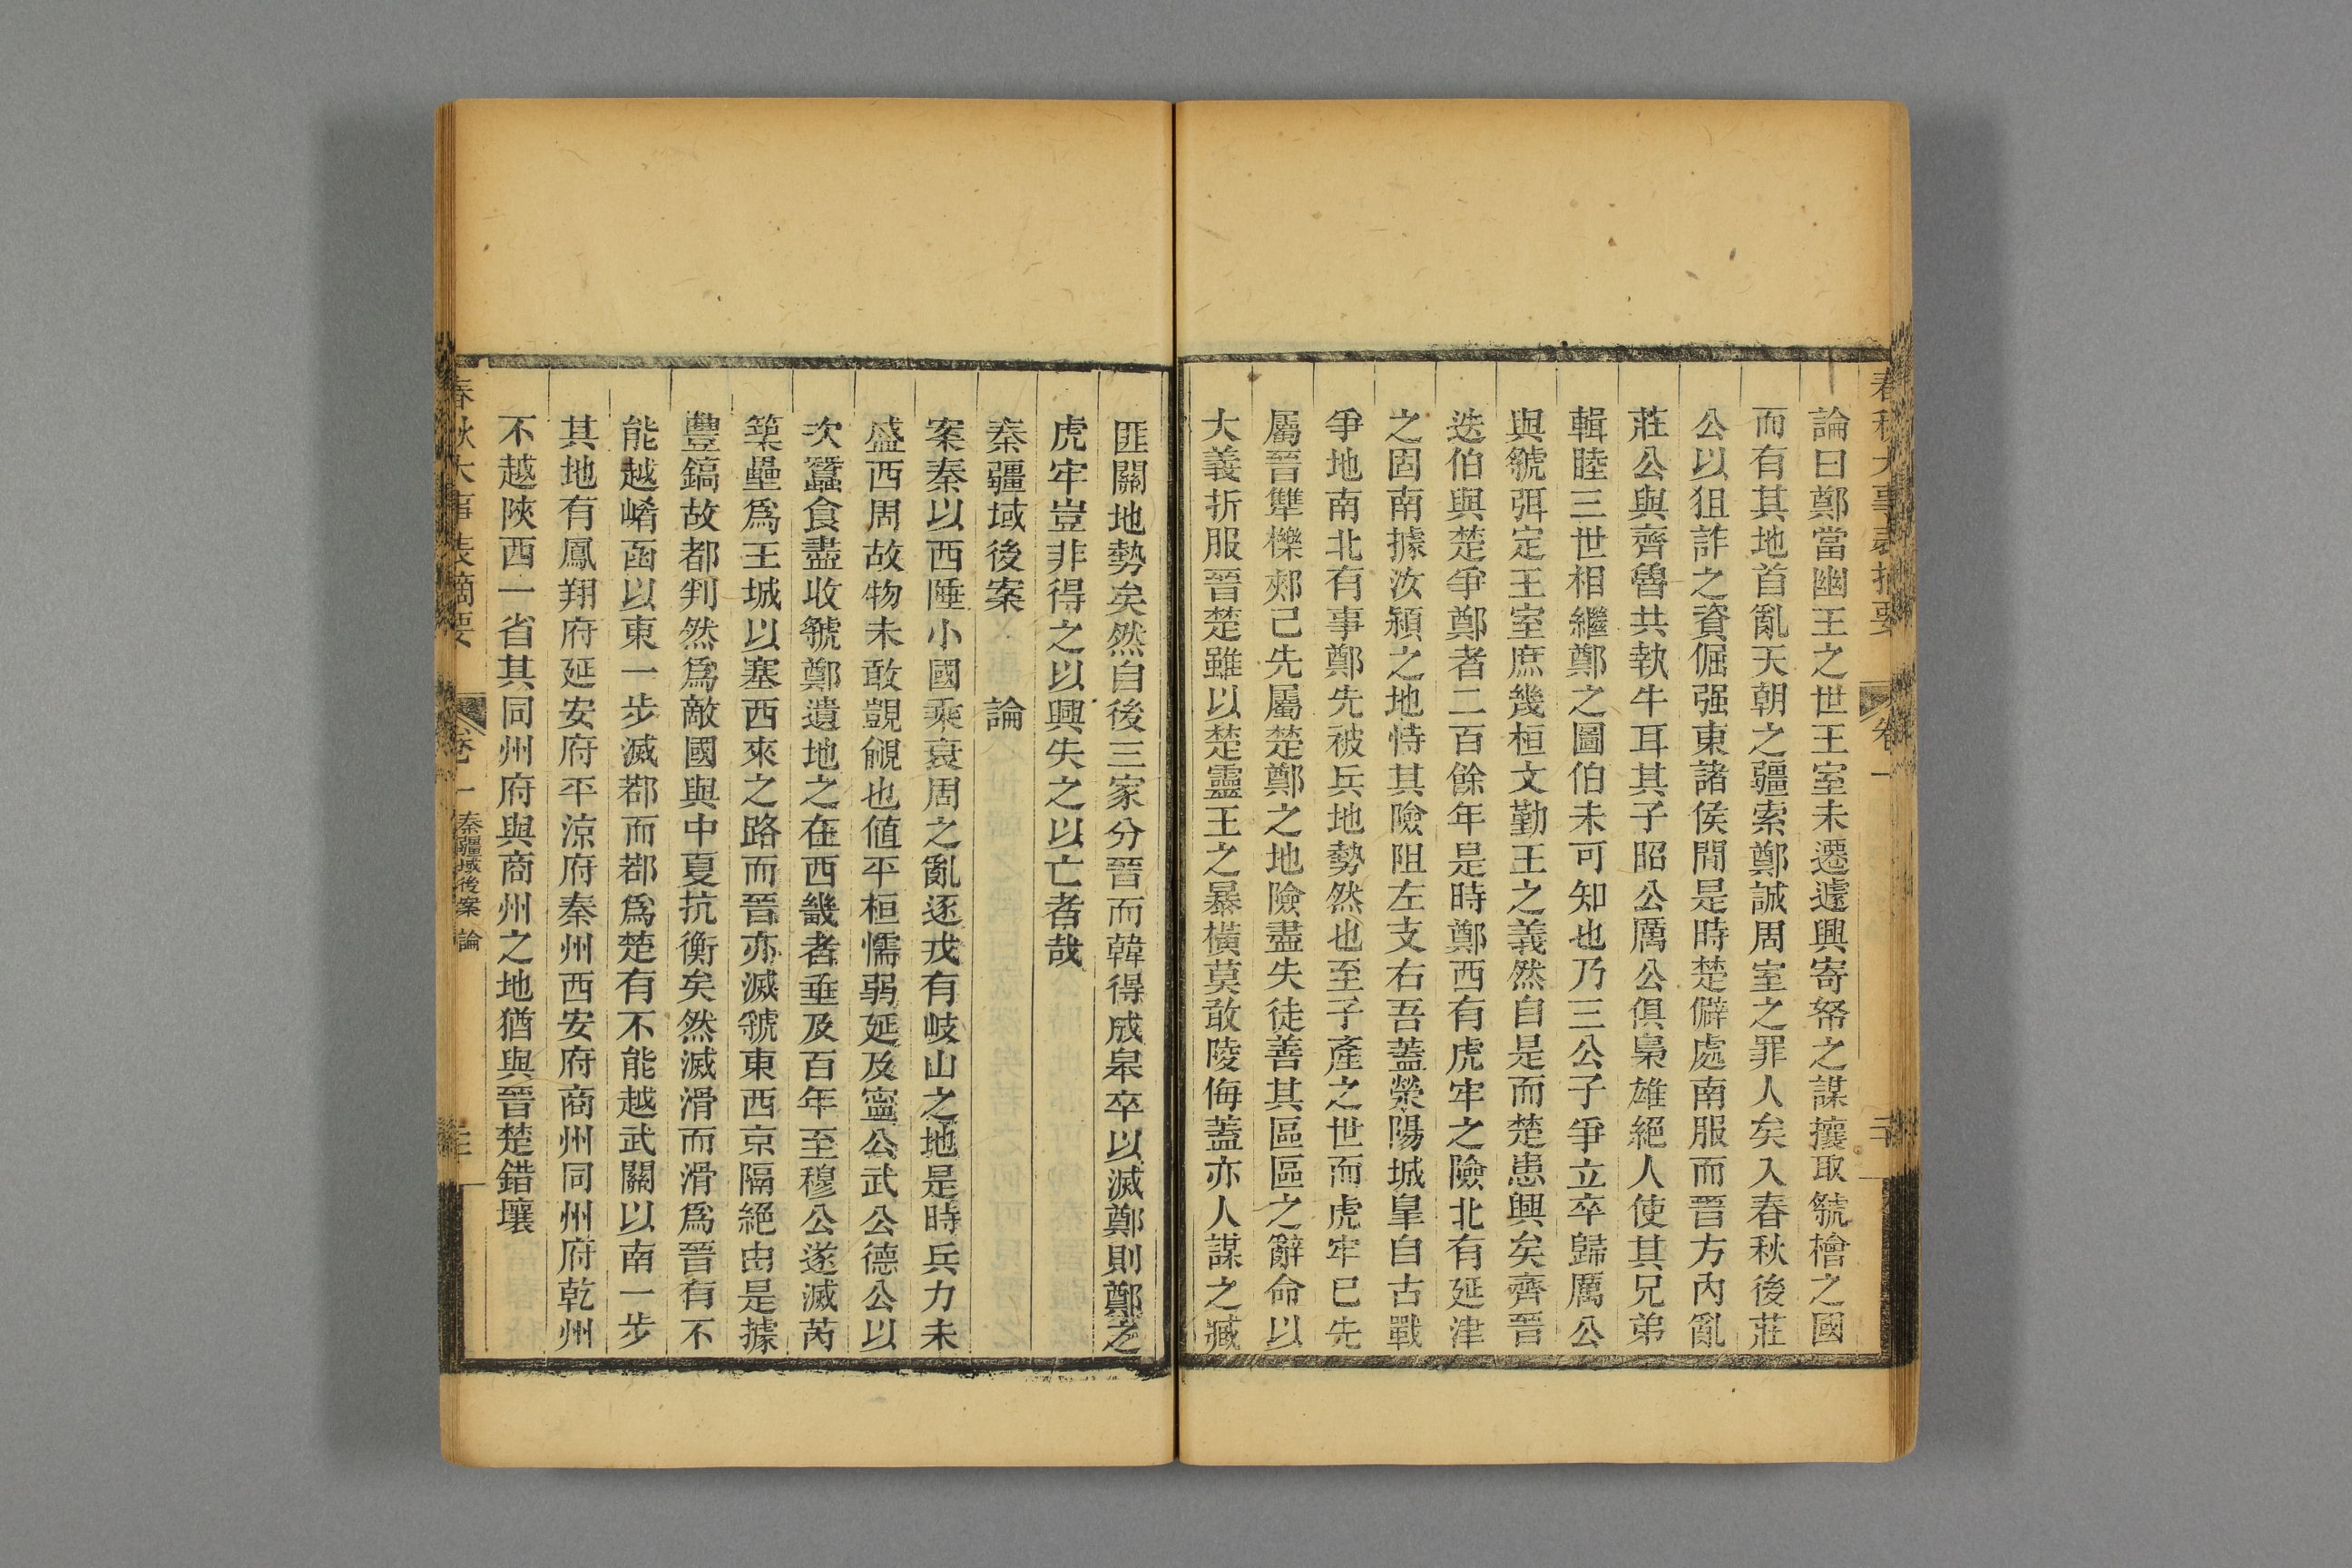 春秋大事表摘要 卷一
論曰鄭當幽王之世王室未遷遽興寄帑之謀攘取虢檜之國
而有其地首亂天朝之疆索鄭誠周室之罪人矣入春秋後莊
公以狙詐之資倔强東諸侯間是時楚僻處南服而晉方內亂
莊公與齊魯共執牛耳其子昭公厲公俱梟雄絕人使其兄弟
輯睦三世相繼鄭之圖伯未可知也乃三公子爭立卒歸厲公
與虢弭定王室庶幾桓文勤王之義然自是而楚患興矣齊晉
迭伯與楚爭鄭者二百餘年是時鄭西有虎牢之險北有延津
之固南據汝潁之地恃其險阻左支右吾蓋滎陽城皐自古戰
爭地南北有事鄭先被兵地勢然也至子產之世而虎牢已先
屬晉犨櫟郟己先屬楚鄭之地險盡失徒善其區區之辭命以
大義折服晉楚雖以楚靈王之暴橫莫敢陵侮蓋亦人謀之臧
匪關地勢矣然自後三家分晉而韓得成皐卒以滅鄭則鄭之
虎牢豈非得之以興失之以亡者哉
秦疆域後案 論
案秦以西陲小國乘衰周之亂逐戎有岐山之地是時兵力未
盛西周故物未敢覬覦也値平桓懦弱延及寧公武公德公以
次蠶食盡收虢鄭遺地之在西畿者垂及百年至穆公遂滅芮
築壘爲王城以塞西來之路而晉亦滅虢東西京隔絕由是據
豐鎬故都判然爲敵國與中夏抗衡矣然滅滑而滑爲晉有不
能越崤函以東一步滅鄀而鄀爲楚有不能越武關以南一步
其地有鳳翔府延安府平涼府秦州西安府商州同州府乾州
不越陝西一省其同州府與商州之地猶與晉楚錯壤
春秋大事表摘要 卷一 秦疆域後案 論